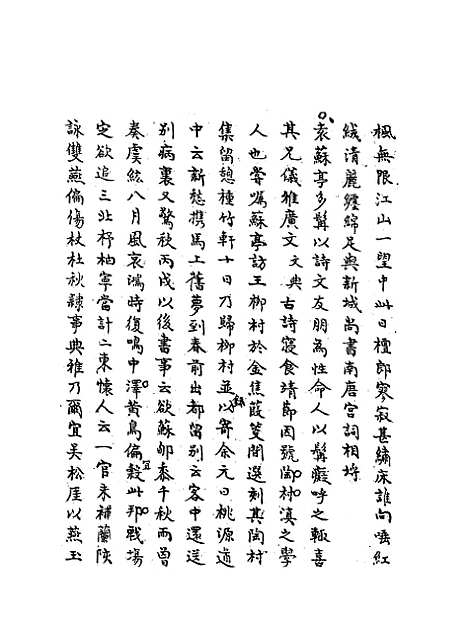 楓無限江山一望中此日檀郎寥寂甚繡床誰向唾紅
絨清麗纏綿足與新城尚書南唐宮詞相埒
袁蘇亭多髯以詩文友朋為性命人以髯癡呼之輒喜
其兄儀雅廣文文典古詩寢食靖節因號陶村滇之學
人也嘗囑蘇亭訪王柳村於金焦葭筊間選刻其陶村
集留憩種竹軒十日乃歸柳村並以錄寄余元日桃源道
中云新愁携馬上舊夢到春前出都留別云客中還送
別病裏又驚秋丙戌以後書事云欲蘇郇黍千秋雨曾
奏虞絃八月風哀鴻時復鳴中澤黃鳥偏宜穀此邦戰場
定欲追三北杼柚寧當計二東懷人云一官未補蘭陔
詠雙燕偏傷杕杜秋隷事典雅乃爾宜吳松厓以燕玉